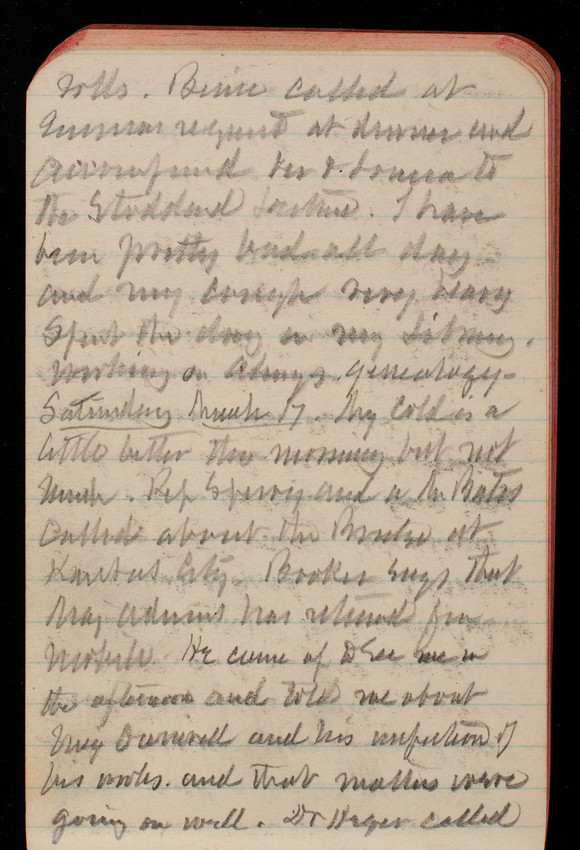 Wells. Binnie called at
request at dinner and
accompanied her & to
the Stoddard Lecture. I have
been pretty bad all day
and my cough very heavy
Spent the day in my Library.
working on genealogy-
Saturday March 17. My cold is a
little better this morning but not
much. Rep Sperry and a Mr Bates
called about the Bridge at
Kansas City. Booker says that
Maj Adams has returned from
Mobile He came up to see me in
the afternoon and told me about
Maj and his inspection of
his works. and that matters were
going on well. Dr Heger called